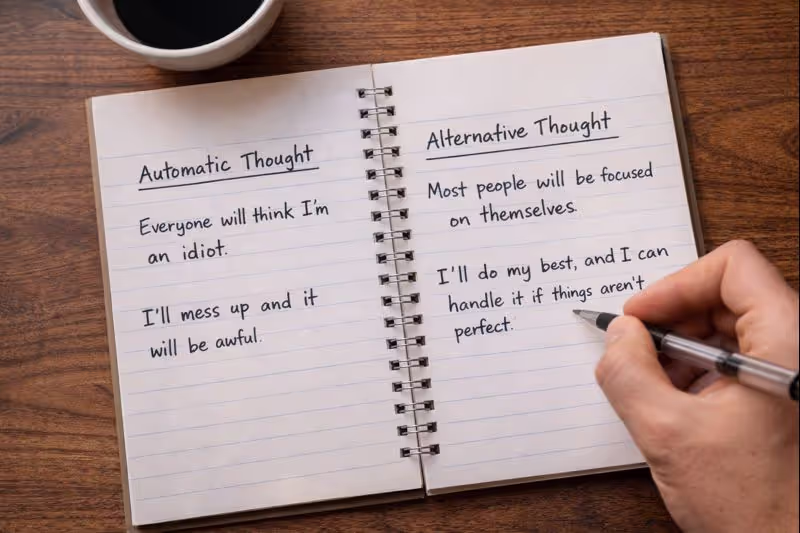 Automatic Thought
Everyone will think I'm
an idiot.
I'll mess up and it
will be awful.
Alternative Thought
Most people will be focused
on themselves.
I'll do my best, and I can
handle it if things aren't
perfect.